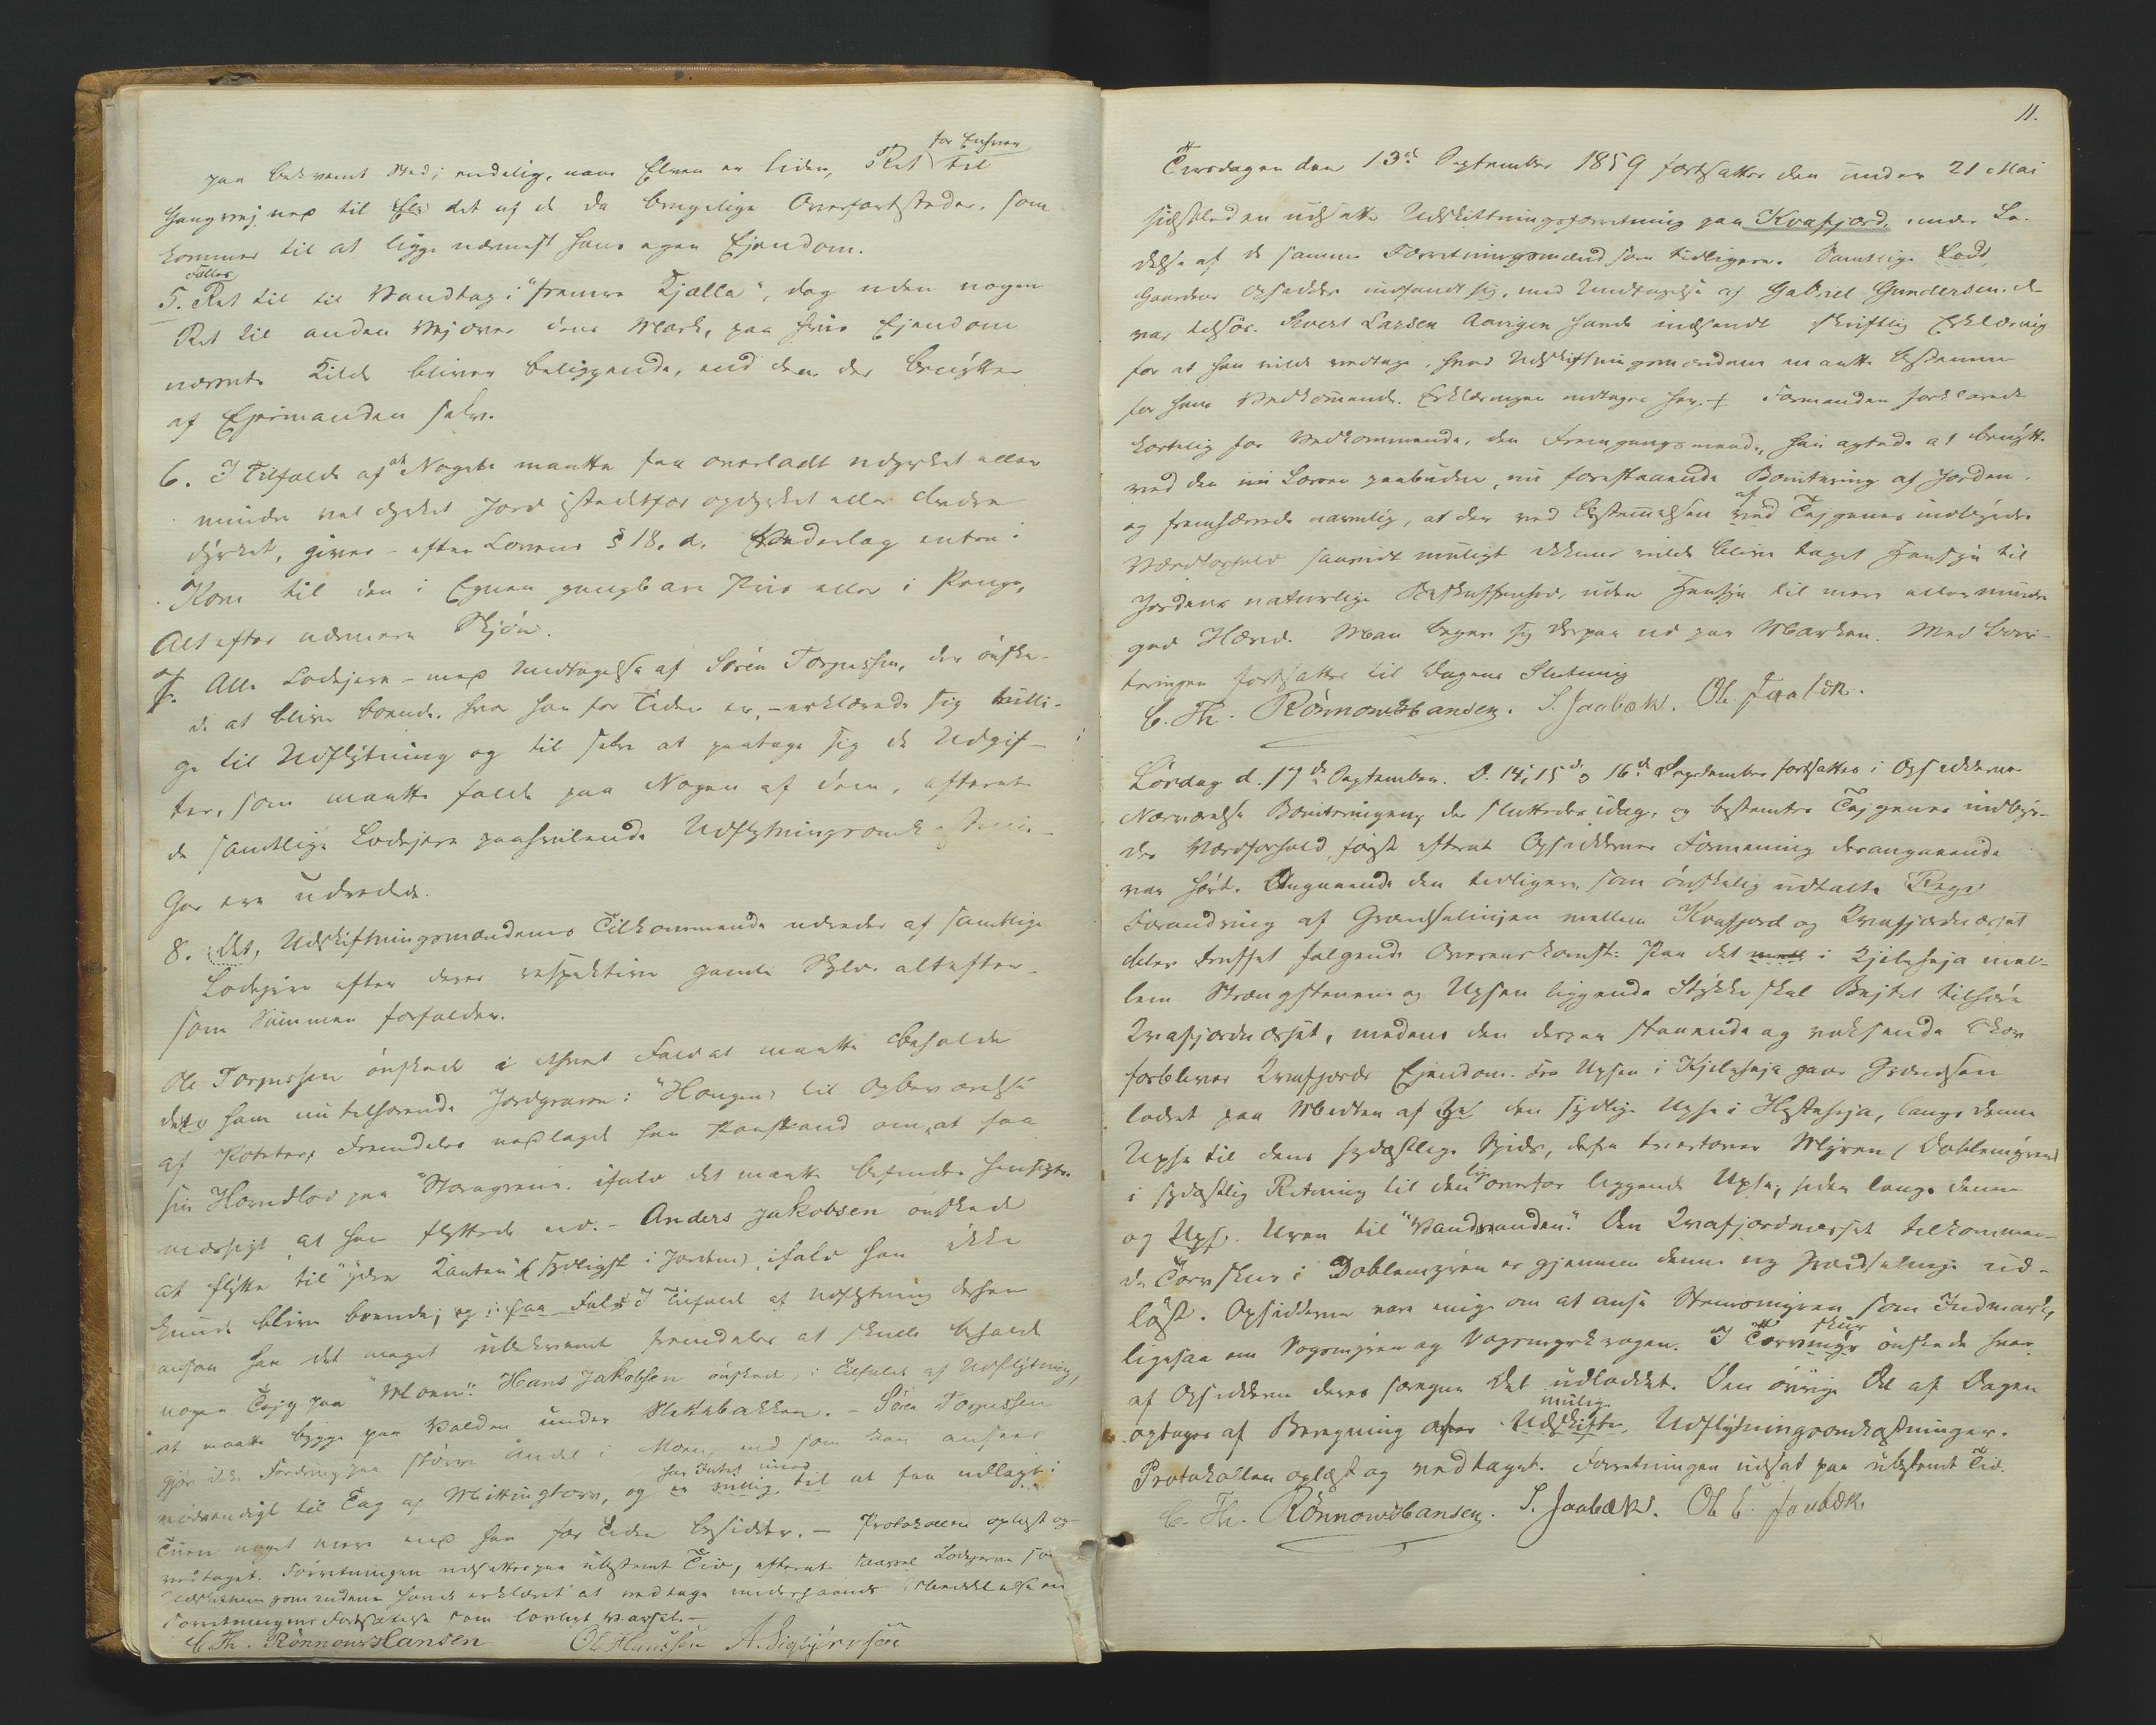 for Enhver
paa bekvemt Sted; endelig, naar Elven er liden, Ret til
Gangvej ned til det af de da brugelige Overfartssteder, som
kommer til at ligge nærmest hans egen Ejendom.
Fælles
5. Ret til til Vandtag i "fremre Kjælla", dog uden nogen
Ret til anden Vej over dens Mark, paa hvis Ejendom
nævnte Kilde bliver beliggende, end den der benyttes
af Ejermanden selv.
6. I Tilfælde af at Nogen maatte faa overladt udyrket eller
mindre vel dyrket Jord istedetfor opdyrket eller bedre
dyrket, gives - efter Lovens § 18. d. Vederlag enten i
Korn til den i Egnen gangbare Pris eller i Penge,
Alt efter nærmere Skjøn.
7. Alle Lodejere - med Undtagelse af Søren Torgersen, der ønske-
de at blive boende, hvor han for Tiden er, - erklærede sig villi-
ge til Udflytning og til selv at paatage sig de Udgif-
ter, som maatte falde paa Nogen af dem, efterat
de samtlige Lodejere paahvilende Udflytningsomkostnin-
ger ere udredede.
8. Det, Udskiftningsmændenes Tilkommende udredes af samtlige
Lodejere efter deres respektive gamle Skyld, altefter-
som Summen forfalder.
Ole Torgersen ønskede i ethvert Fald at maatte beholde
det ham nu tilhørende Jordgrave i "Haugen" til Opbevarelse
af Poteter; Fremdeles nedlagde han Paastand om at faa
sin Hovedlod paa "Storagrenin", ifald det maatte befindes hensigts-
mæssigt, at han flyttede ud. - Anders Jakobsen ønskede
at flytte til "ydre Kanten" (sydligst i Jorden), ifald han ikke
kunde blive boende; og i faa Fald I Tilfælde af Udflytning dersom
ansaa han det meget ubekvemt fremdeles at skulle beholde
nogen Tejg paa "Moen". Hans Jakobsen ønskede, i Tilfælde af Udflytning,
at maatte bygge paa Volden under Slettebakken. - Søren Torgersen
gjør ikke Fordring paa større Andel i Moen, end som kan ansees
har Intet imod
nødvendigt til Tag af Mittingtorv, og er villig til at faa udlagt i
Tuen noget mere end han for Tiden besidder. - Protokollen oplæst og
vedtaget. Forretningen udsættes paa ubestemt Tid, efterat saavel Lodejerne som
Udskiftningsmændene havde erklæret at vedtage underhaands Meddelelse om
Forretningens Fortsættelse som lovligt Varsel. -
C. Th. Rönnow Hansen Ole Hanssen A. Sigbjørnsen
11.
Tirsdagen den 13de September 1859 fortsattes den under 21 Mai
sidstleden udsatte Udskiftningsforretning paa Kvafjord, under Le-
delse af de samme Forretningsmænd som tidligere. Samtlige Lods
Gaardens Opsiddere indfandt sig, med Undtagelse af Gabriel Gundersen. -
var tilstede. Sivert Larsen Aavigen havde indsendt skriftlig Erklæring
for at han vilde vedtage, hvad Udskiftningsmændene maatte bestemme
for hans Vedkommende. Erklæringen modtages her. + Formanden forklarede
kortelig for Vedkommende, den Fremgangsmaade, han agtede at benytte
ved den i Loven paabudne, nu forestaaende Bonitering af Jorden,
og fremhævede navnlig, at der ved Bestemmelsen af Tejgenes indbyrdes
Værdforhold saavidt muligt ikkun vilde blive taget Hensyn til
Jordens naturlige Beskaffenhed, uden Hensyn til mere eller mindre
god Hævd. Man begav sig derpaa ud paa Marken. Med Boni-
teringen fortsattes til Dagens Slutning
C. Th. Rönnow Hansen. S. Jaabæk. Ole Jaabæk.
Lördag d. 17de September. D. 14, 15de og 16de September fortsattes i Opsiddernes
Nærværelse Boniteringen, der sluttedes idag, og bestemtes Tejgenes indbyr-
des Værdforhold, først efterat Opsiddernes Formening derangaaende
var hørt. Angaaende den tidligere, som ønskelig udtalte Regu
Forandring af Grændselinjen mellem Kvafjord og Kvafjordnæsset
blev truffet følgende Overenskomst: Paa det i Kjeleheja mel-
lem Strængstenene og Upsen liggende Stykke skal Bejtet tilhøre
Kvafjordnæsset, medens den derpaa staaende og voksende Skov
forbliver Kvafjords Ejendom. Fra Upsen i Kjeleheja gaar Grændsen
lodret paa Midten af den sydlige Upse i Hesteheja, langs denne
Upse til dens sydøstlige Spids, derfra tvertover Myren (Doblemyren)
i sydøstlig Retning til den lige overfor liggende Upse, siden langs denne
og Ups. Uren til "Vandvanden". Den Kvafjordnæsset tilkommen-
de Torvskur i Doblemyren er gjennem denne nye Grændselinje ud-
løst. Opsidderne vare enige om at anse Stemsmyren som Indmark,
ligesaa om Vogsmyren og Vogsmyrkragen. I Torvskur ønskede hver
af Opsidderne deres særegne Del udloddet. Den øvrige Del af Dagen
optoges af Beregning over mulige Udflytningsomkostninger.
Protokollen oplæst og vedtaget. Forretningen udsat paa ubestemt Tid.
C. Th. Rönnow Hansen. S. Jaabæk. Ole E. Jaabæk.